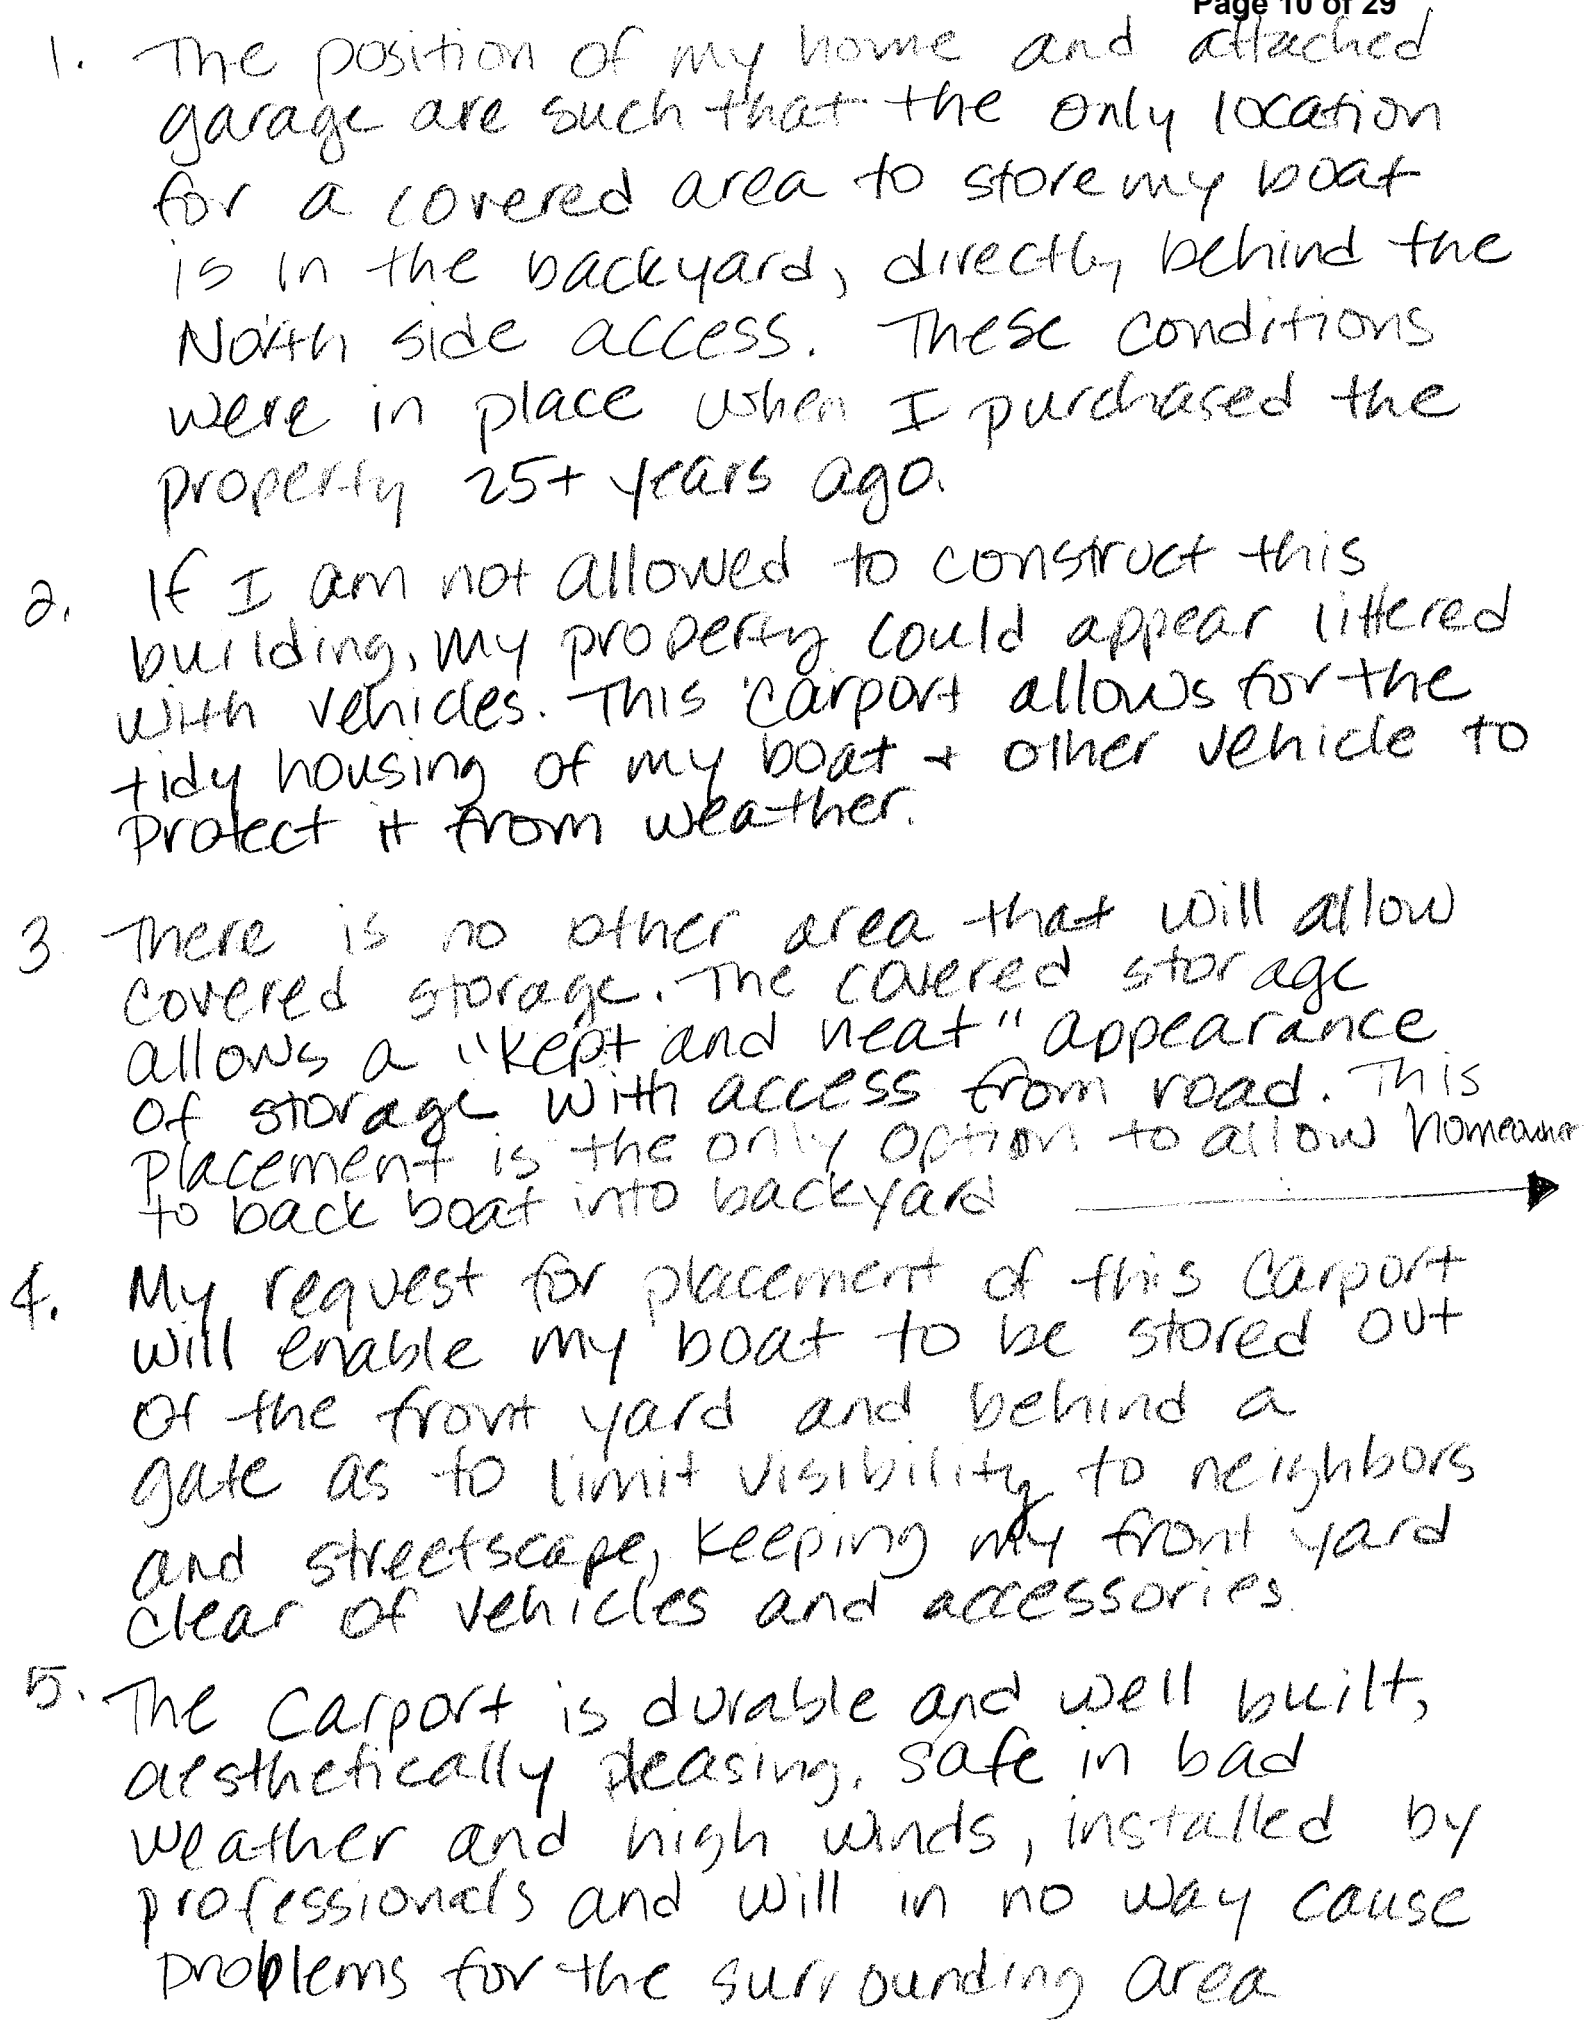 Page 10 of 29
1. The position of my home and attached
garage are such that the only location
for a covered area to store my boat
is in the backyard, directly behind the
North side access. These conditions
were in place when I purchased the
property 25+ years ago.
2. If I am not allowed to construct this
building, my property could appear littered
with vehicles. This carport allows for the
tidy housing of my boat + other vehicle to
protect it from weather.
3 There is no other area that will allow
covered storage. The covered storage
allows a "kept and neat" appearance
of storage with access from road. This
placement is the only option to allow homeowner
to back boat into backyard
4. My request for placement of this carport
will enable my boat to be stored out
of the front yard and behind a
gate as to limit visibility to neighbors
and streetscape, keeping my front yard
clear of vehicles and accessories.
5. The carport is durable and well built,
aesthetically pleasing, safe in bad
weather and high winds, installed by
professionals and will in no way cause
problems for the surrounding area